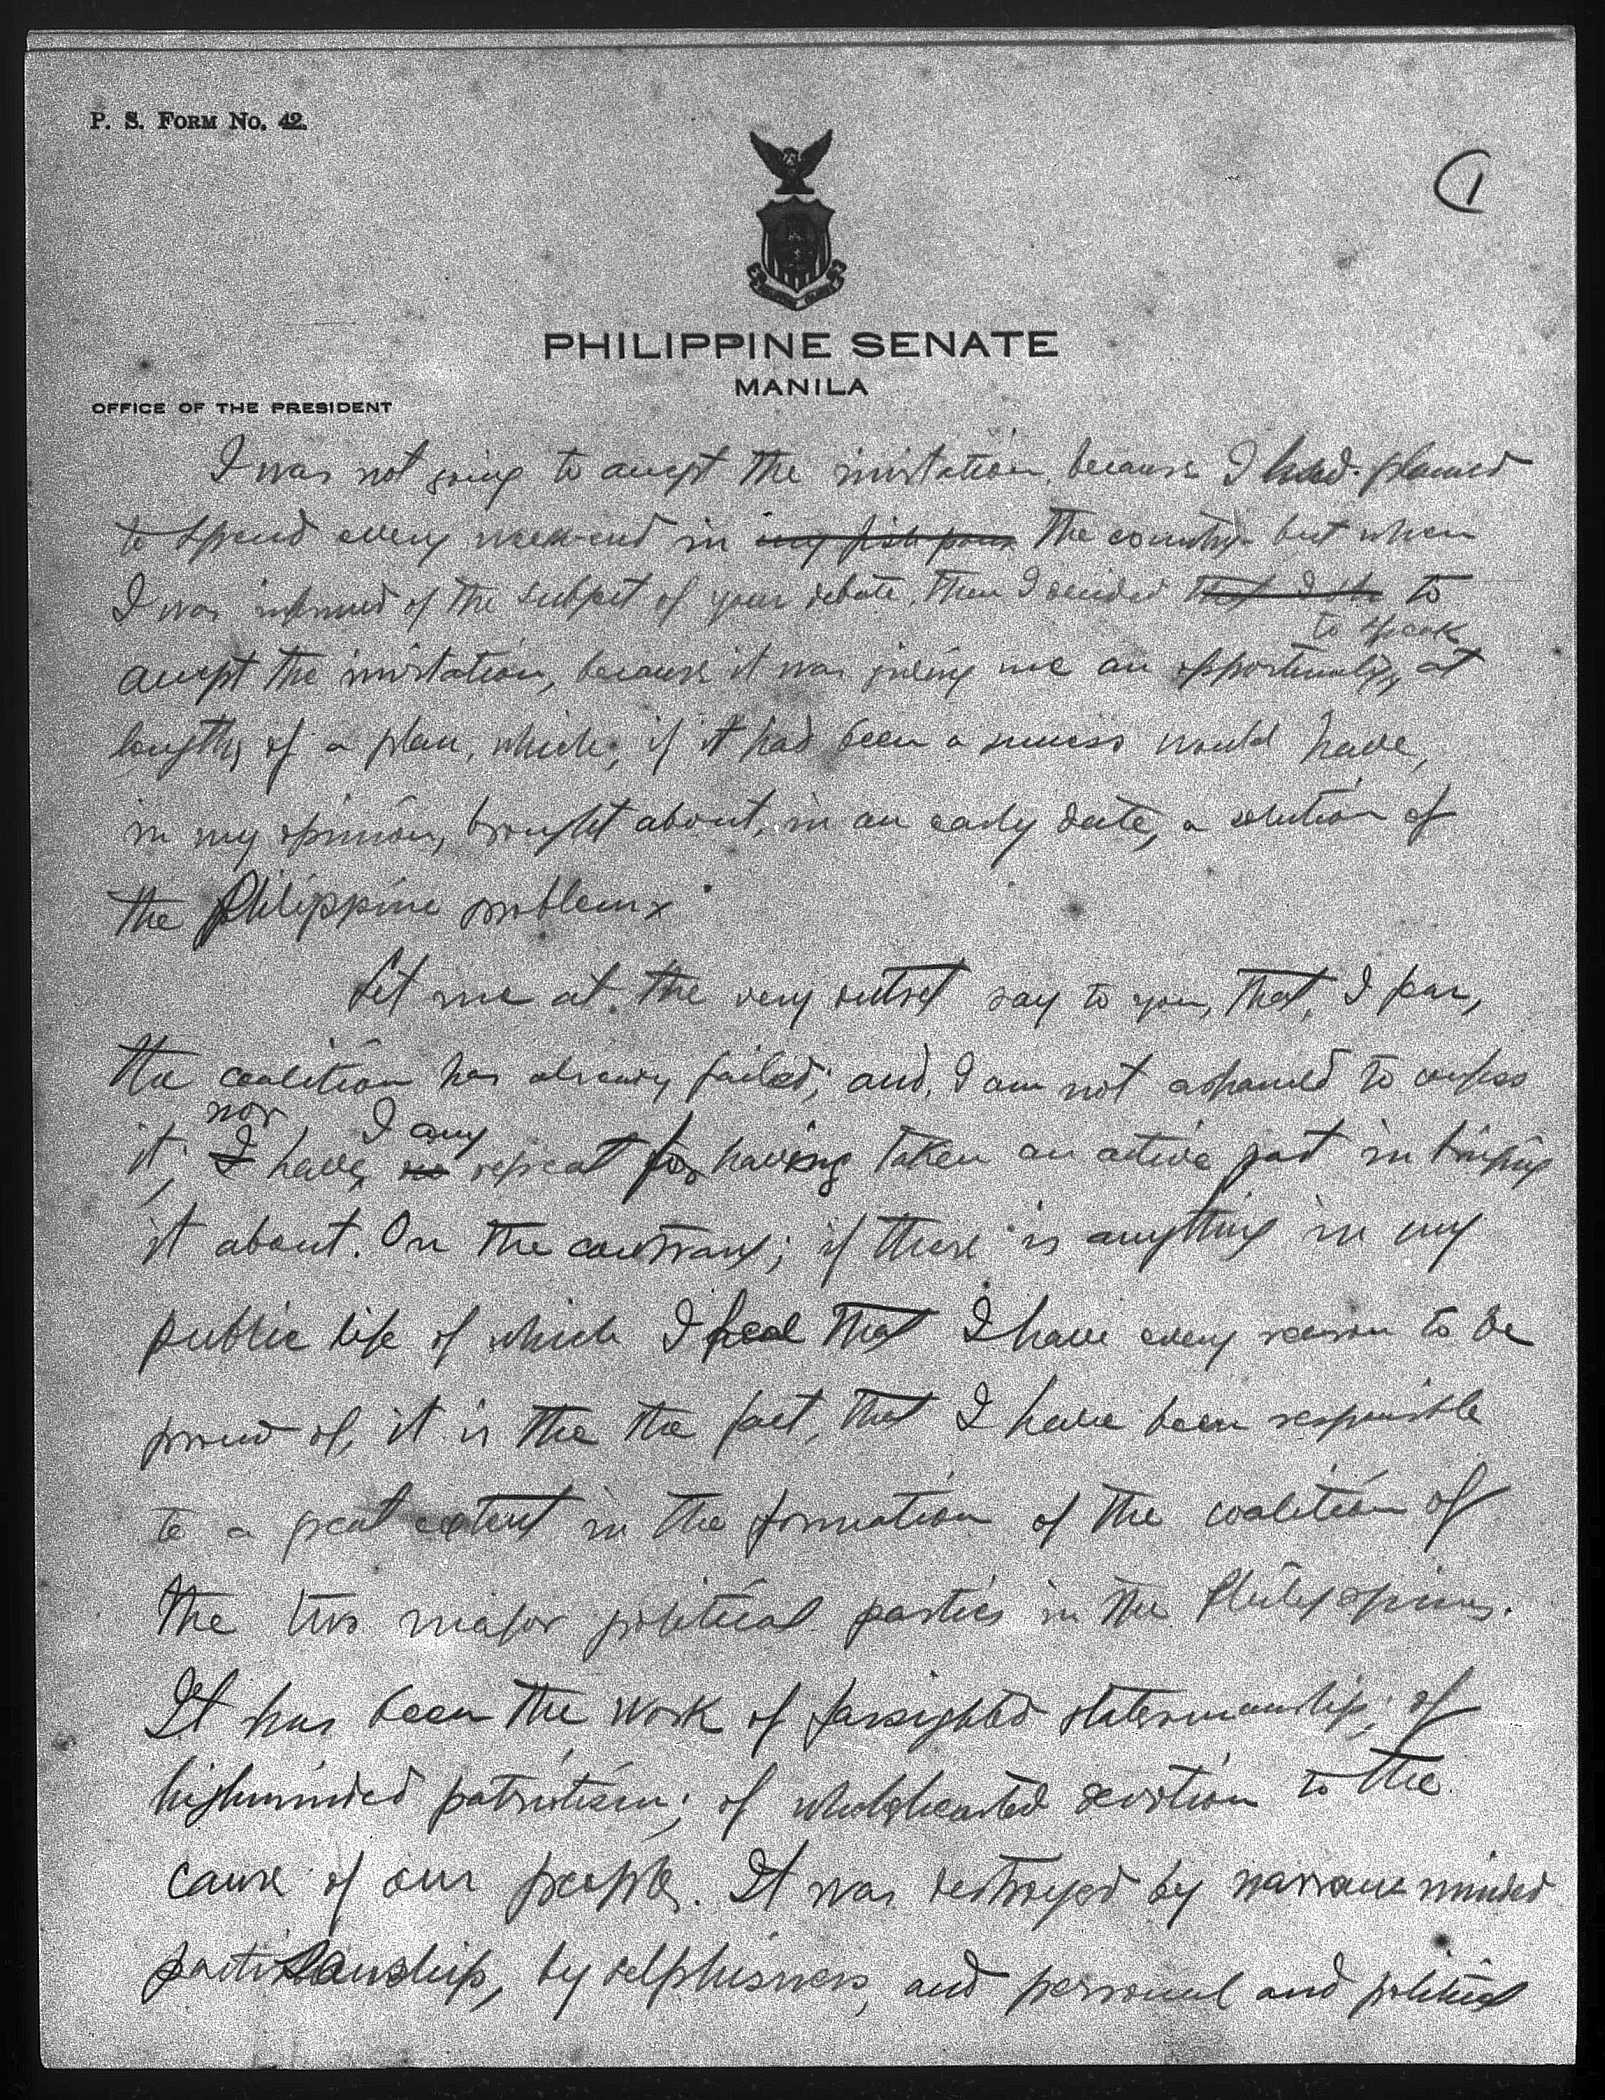 P. S. FORM NO. 42.
1
PHILIPPINE SENATE
MANILA
OFFICE OF THE PRESIDENT
I was not going to accept the invitation, because I had planned
to spend every week-end in my fish pond the country but when
I was informed of the subject of your debate, then I decided that I to
to speak
accept the invitation, because it was giving me an opportunity, at
length, of a plan, which, if it had been a success would have,
in my opinion, brought about, in an early date, a solution of
the Philippine problem
Let me at the very outset say to you, that, I fear,
the coalition has already failed; and, I am not ashamed to confess
nor I any
it, I have no repeat for having taken an active part in bringing
it about. On the contrary; if there is anything in my
public life of which I feel that I have every reason to be
proud of, it is the the fact, that I have been responsible
to a great extent in the formation of the coalition of
the two major political parties in the Philippines.
It has been the work of farsighted statesmanship; of
highminded patriotism; of wholehearted devotion to the
cause of our people. It was destroyed by narrow minded
partisanship, by selfishness, and personal and political